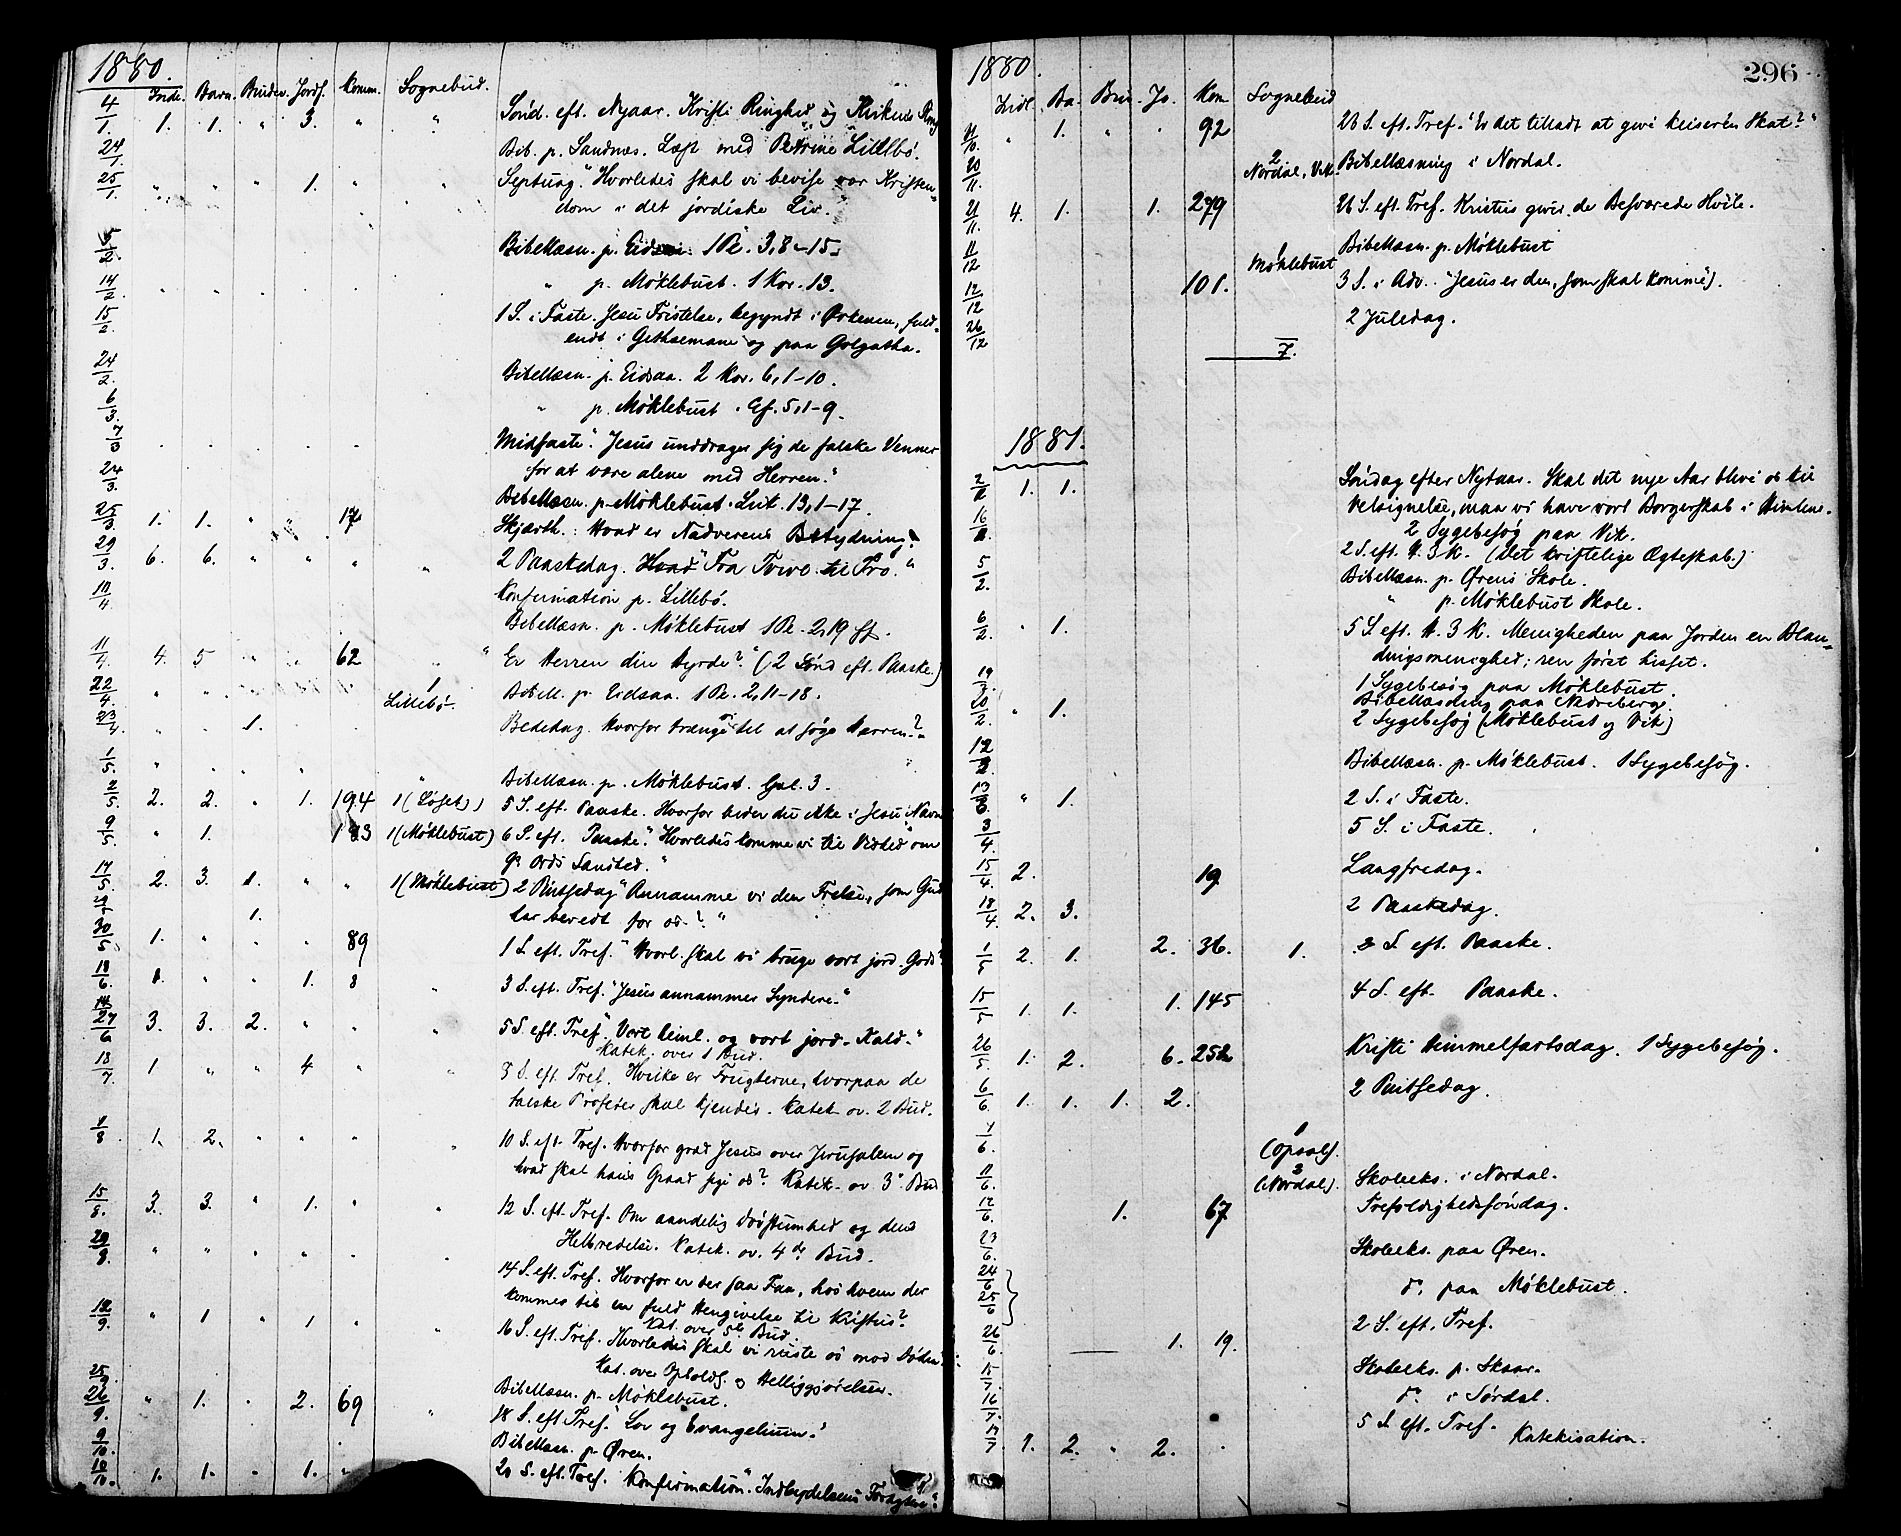 1880.
Indl. Barn. Brudev. Jordf. Komm. Sognebud.
4/1. 1. 1. " 3. " " Sønd. eft. Nyaar. Kristi Ringhed og Kirkens
24/1. Bib. p. Sandnæs. Læst med Petrine Lillebø.
25/1. " " " 1. " " Septuag. "Hvorledes skal vi bevise vor Kristen-
dom i det jordiske Liv."
5/2. Bibellæsn. p. Eidsaa. 1 Pe. 3, 8-15.
14/2. " p. Møklebust. 1 Kor. 13.
15/2. 1 S. i Faste. Jesu Fristelse, begyndt i Ørkenen, fuld-
endt i Gethsemane og paa Golgatha.
24/2. Bibellæsn. p. Eidsaa. 2 Kor. 6, 1-10.
6/3. " p. Møklebust. Ef. 5, 1-9.
7/3 Midfaste. "Jesus unddrager sig de falske Venner
for at være alene med Herren."
24/3. Bibellæsn. p. Møklebust. Luk. 13, 1-17.
25/3. 1. 1. " " 17. Skjærth.: Hvad er Nadverens Betydning?
29/3. 6. 6. " " " " 2 Paaskedag. "Fra Tvivl til Tro."
10/4. Konfirmation p. Lillebø.
Bibellæsn. p. Møklebust 1 Pe. 2, 19 ff.
11/4. 4. 5 " " 62 " Er Herren din Hyrde?" (2 Sønd eft. Paaske.)
22/4. " " 1 Lillebø. Bibell. p. Eidsaa. 1 Pe. 2, 11-18.
23/4. " " 1. Bededag. Hvorfor trænge vi til at søge Herren?"
1/5. " " " " Bibellæsn. p. Møklebust. Gal. 3.
2/5. 2. 2. " 1. 194 1 (Løset) 5 S. eft. Paaske. Hvorfor beder du ikke i Jesu Navn
9/5. " 1. 183 1 (Møklebust) 6 S. eft. Paaske. "Hvorledes komme vi til Vished om
Gs Ords Sandhed."
17/5. 2. 3. 1. " " 1 (Møklebust) 2 Pintsedag "Annamme vi den Frelse, som Gud
har beredt for os?"
1.
30/5 1. " " " 89 1 S. eft. Tref. "Hvorl. skal vi bruge vort jord. Gods?
18/6. 1. " " 1. 8 " 3 S. eft. Tref. "Jesus annammer Syndere."
27/6 3. 3. 2. " " " 5 S. eft. Tref. "Vort himl. og vort jord. Kald."
Katek. over 1 Bud.
18/7. 1 " " 4 " " 8 S. eft. Tref. Hvilke er Frugterne, hvorpaa de
falske Profeter skal kjendes. Katek. ov. 2 Bud.
1/8 1. 2. " " " " 10 S. eft Tref. Hvorfor græd Jesus over Jerusalem og
hvad skal hans Graad sige os? Katek. ov. 3' Bud
15/8. 3. 3. " 1. " " 12 S. eft. Tref. Om aandelig Døvstumhed og dens
Helbredelse. Katek. ov. 4de Bud.
29/8. " " " " " 14 S. eft. Tref. Hvorfor er der saa Faa, hos hvem der
kommes til en fuld Hengivelse til Kristus?
Kat. over 5te Bud.
12/9. " 1 " 1 " " 16 S. eft. Tref. Hvorledes skal vi ruste os mod Døden?
Kat. over Ophold. og Helliggjørelsen.
25/9. Bibellæsn. p. Møklebust.
26/9. " 1. " 2. 69 " 18 S. eft Tref. "Lov og Evangelium."
9/10. Bibellæsn. p. Øren.
10/10. 1. 1. " 1. " 20 S. eft. Tref. Konfirmation. "Indbydelsens Foragtere."
296
1880.
Indl. Ba. Bru. Jo. Kom Sognebud
" 1. " " 92 23 S. eft. Tref. "Er det tilladt at give Keiseren Skat?"
20/11. 2 Nordal, Vik. Bibellæsning i Nordal.
21/11. 4. 1. 1. 279 26 S. eft. Tref. Kristus giver de Besværede Hvile.
11/12 1 Møklebust Bibellæsn. p. Møklebust
12/12 101. 3 S. i Adv. "Jesus er den, som skal komme").
26/12 2 Juledag.
7.
1881.
2/1 1. 1. Søndag efter Nytaar. Skal det nye Aar blive os til
Velsignelse, maa vi have vort Borgerskab i Himlene.
2 Sygebesøg paa Vik.
16/1. 2 S. eft. H. 3 K. (Det kristelige Ægteskab.)
5/2. Bibellæsn. p. Ørens Skole.
" p. Møklebust Skole.
6/2. " 1. 5 S. eft. H. 3 K. Menigheden paa Jorden en Blan-
dingsmenighed; ren først hisset.
19/2. 1 Sygebesøg paa Møklebust.
Bibellæsning paa Nedreberg.
20/2. " 1. 2 Sygebesøg (Møklebust og Vik)
12/3. Bibellæsn. p. Møklebust. 1 Sygebesøg.
13/3. " 1. 2 S. i Faste.
3/4. 5 S. i Faste.
15/4. 2. 19 Langfredag.
18/4. 2. 3. 2 Paaskedag.
1/5 2. 1. 2. 36. 1. 2 S. eft. Paaske.
15/5 1. 1. 1. 145 4 S. eft. Paaske.
26/5. 1. 2. 6. 252 Kristi Himmelfartsdag. 1 Sygebesøg.
6/6. 1. 1. 1. 2. 2 Pintsedag.
7/6. 1 (Opsal).
11/6. 3 (Nordal). Skoleeks. i Nordal.
12/6. 1. 67 Trefoldighedssøndag.
23/6. Skoleeks. paa Øren.
24/6 25/6 } do. paa Møklebust.
26/6. 1. 19. 2 S. eft. Tref.
15/7. Skoleeks. p. Skaar.
16/7. do. i Sørdal.
17/7 1. 2. " 2. 5 S. eft. Tref. Katekisation.